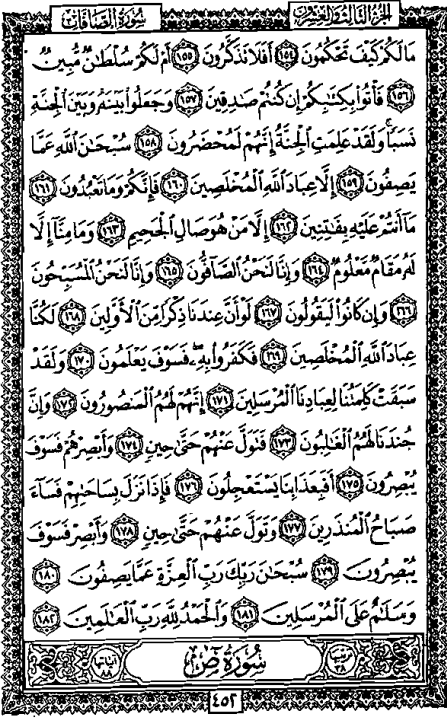 الجزء الثالث والعشرون سورة الصافات
مَا لَكُمْ كَيْفَ تَحْكُمُونَ ١٥٤ أَفَلَا تَذَكَّرُونَ ١٥٥ أَمْ لَكُمْ سُلْطَانٌ مُّبِينٌ
١٥٦ فَأْتُوا بِكِتَابِكُمْ إِن كُنتُمْ صَادِقِينَ ١٥٧ وَجَعَلُوا بَيْنَهُ وَبَيْنَ الْجِنَّةِ
نَسَبًا وَلَقَدْ عَلِمَتِ الْجِنَّةُ إِنَّهُمْ لَمُحْضَرُونَ ١٥٨ سُبْحَانَ اللَّهِ عَمَّا
يَصِفُونَ ١٥٩ إِلَّا عِبَادَ اللَّهِ الْمُخْلَصِينَ ١٦٠ فَإِنَّكُمْ وَمَا تَعْبُدُونَ ١٦١
مَا أَنتُمْ عَلَيْهِ بِفَاتِنِينَ ١٦٢ إِلَّا مَنْ هُوَ صَالِ الْجَحِيمِ ١٦٣ وَمَا مِنَّا إِلَّا
لَهُ مَقَامٌ مَّعْلُومٌ ١٦٤ وَإِنَّا لَنَحْنُ الصَّافُّونَ ١٦٥ وَإِنَّا لَنَحْنُ الْمُسَبِّحُونَ
١٦٦ وَإِن كَانُوا لَيَقُولُونَ ١٦٧ لَوْ أَنَّ عِندَنَا ذِكْرًا مِّنَ الْأَوَّلِينَ ١٦٨ لَكُنَّا
عِبَادَ اللَّهِ الْمُخْلَصِينَ ١٦٩ فَكَفَرُوا بِهِ فَسَوْفَ يَعْلَمُونَ ١٧٠ وَلَقَدْ
سَبَقَتْ كَلِمَتُنَا لِعِبَادِنَا الْمُرْسَلِينَ ١٧١ إِنَّهُمْ لَهُمُ الْمَنصُورُونَ ١٧٢ وَإِنَّ
جُندَنَا لَهُمُ الْغَالِبُونَ ١٧٣ فَتَوَلَّ عَنْهُمْ حَتَّى حِينٍ ١٧٤ وَأَبْصِرْهُمْ فَسَوْفَ
يُبْصِرُونَ ١٧٥ أَفَبِعَذَابِنَا يَسْتَعْجِلُونَ ١٧٦ فَإِذَا نَزَلَ بِسَاحَتِهِمْ فَسَاءَ
صَبَاحُ الْمُنذَرِينَ ١٧٧ وَتَوَلَّ عَنْهُمْ حَتَّى حِينٍ ١٧٨ وَأَبْصِرْ فَسَوْفَ
يُبْصِرُونَ ١٧٩ سُبْحَانَ رَبِّكَ رَبِّ الْعِزَّةِ عَمَّا يَصِفُونَ ١٨٠
وَسَلَامٌ عَلَى الْمُرْسَلِينَ ١٨١ وَالْحَمْدُ لِلَّهِ رَبِّ الْعَالَمِينَ ١٨٢
ترتيبها ٣٨ سُورَةُ ص آياتها ٨٨
٤٥٢